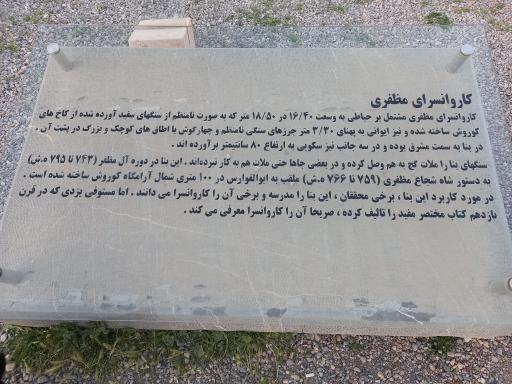 کاروانسرای مظفری
کاروانسرای مظفری مشتمل بر حیاطی به وسعت ۱۶/۴۰ در ۱۸/۵۰ متر که به صورت نامنظم از سنگهای سفید آورده شده از کاخ های
کوروش ساخته شده و نیز ایوانی به پهنای ۳/۳۰ متر جرزهای سنگی نامنظم و چهارگوش با اطاق های کوچک و بزرگ در پشت آن .
در بنا به سمت مشرق بوده و در سه جانب نیز سکویی به ارتفاع ۸۰ سانتیمتر برآورده اند .
سنگهای بنا را ملات گچ به هم وصل کرده و در بعضی جاها حتی ملات هم به کار نبرده‌اند . این بنا در دوره آل مظفر (۷۴۳ تا ۷۹۵ ه.ش)
به دستور شاه شجاع مظفری (۷۵۹ تا ۷۶۶ ه.ش) ملقب به ابوالفوارس در ۱۰۰ متری شمال آرامگاه کوروش ساخته شده است .
در مورد کاربرد این بنا ، برخی محققان ، این بنا را مدرسه و برخی آن را کاروانسرا می دانند . اما مستوفی یزدی که در قرن
یازدهم کتاب مختصر مفید را تالیف کرده ، صریحا آن را کاروانسرا معرفی می کند .